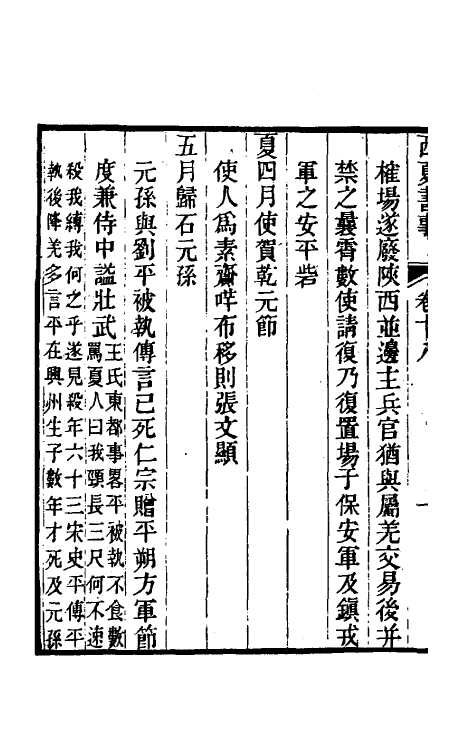 西夏書事　卷十八　一
榷場遂廢陝西並邊主兵官猶與屬羌交易後并
禁之曩霄數使請復乃復置場于保安軍及鎮戎
軍之安平砦
夏四月使賀乾元節
使人爲素齋咩布移則張文顯
五月歸石元孫
元孫與劉平被執傳言已死仁宗贈平朔方軍節
度兼侍中謚壯武王氏東都事畧平被執不食數
罵夏人曰我頸長三尺何不速
殺我縛我何之乎遂見殺年六十三宋史平傳平
執後降羌多言平在興州生子數年才死及元孫